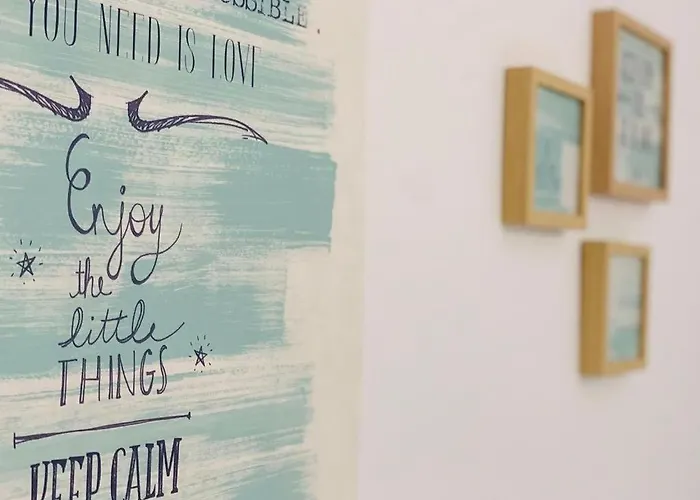 YOU NEED IS LOVE
Enjoy
the
little
THINGS
KEEP CALM